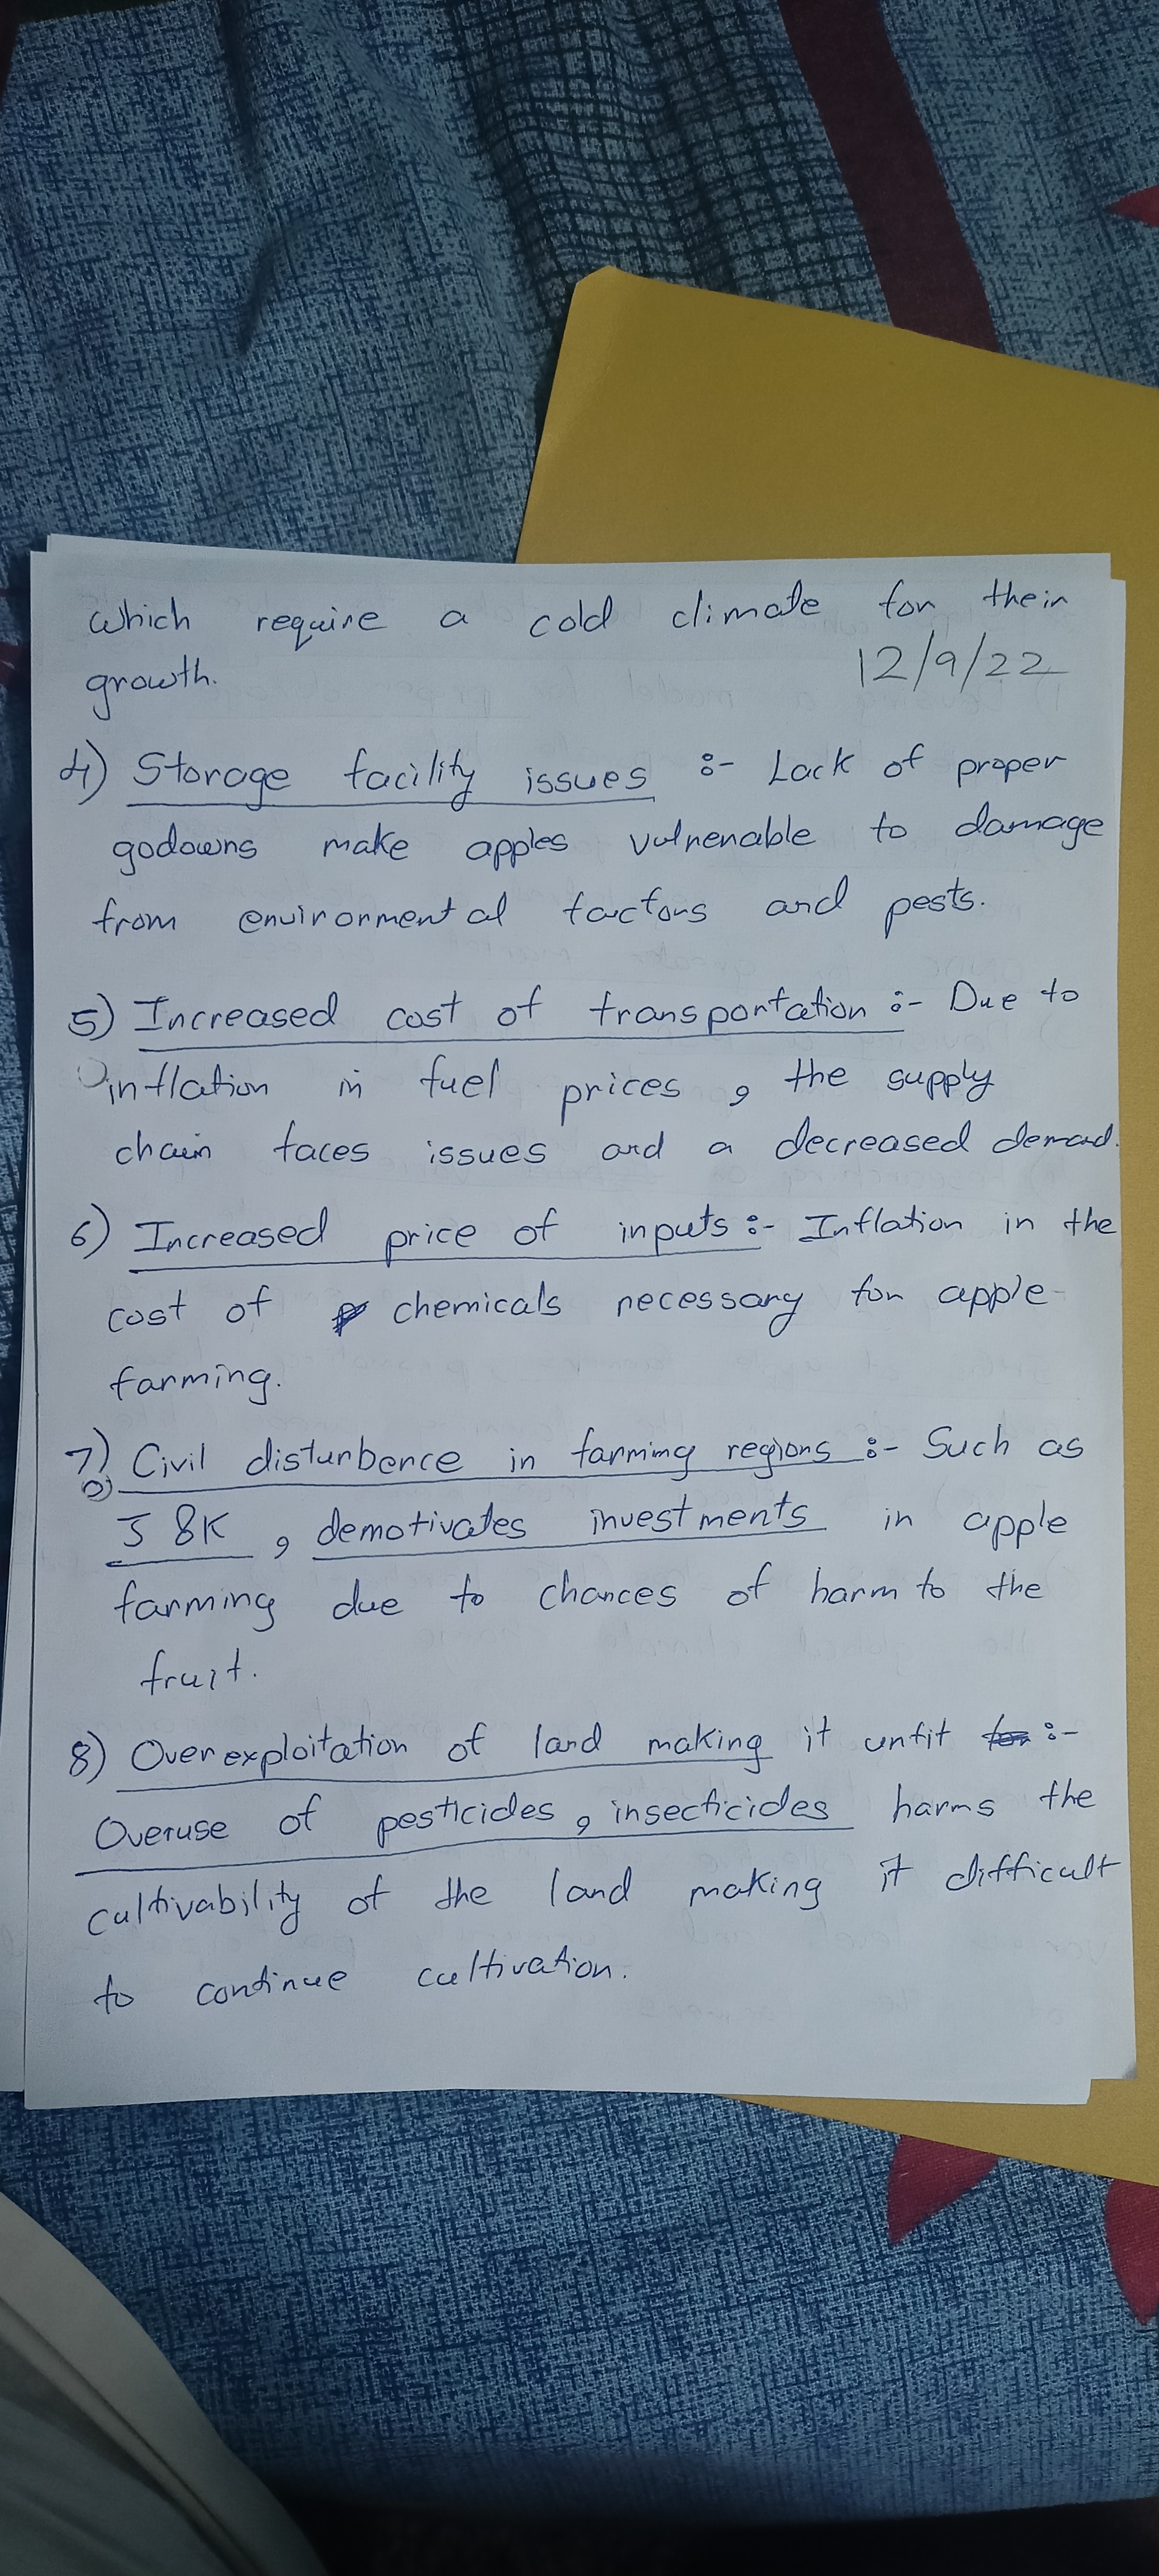 which require a cold climate for their
growth. 12/9/22
4) Storage facility issues :- Lack of proper
godowns make apples vulnerable to damage
from envirormental factors and pests.
5) Increased cost of transportation :- Due to
inflation in fuel prices, the supply
chain faces issues and a decreased demand.
6) Increased price of inputs :- Inflation in the
cost of chemicals necessary for apple
farming.
7) Civil disturbence in farming regions :- Such as
J &K, demotivates investments in apple
farming due to chances of harm to the
fruit.
8) Overexploitation of land making it unfit :-
Overuse of pesticides, insecticides harms the
cultivability of the land making it difficult
to continue cultivation.